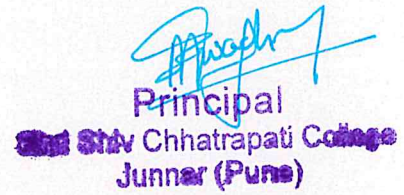 Principal
Shri Shiv Chhatrapati College
Junnar (Pune)